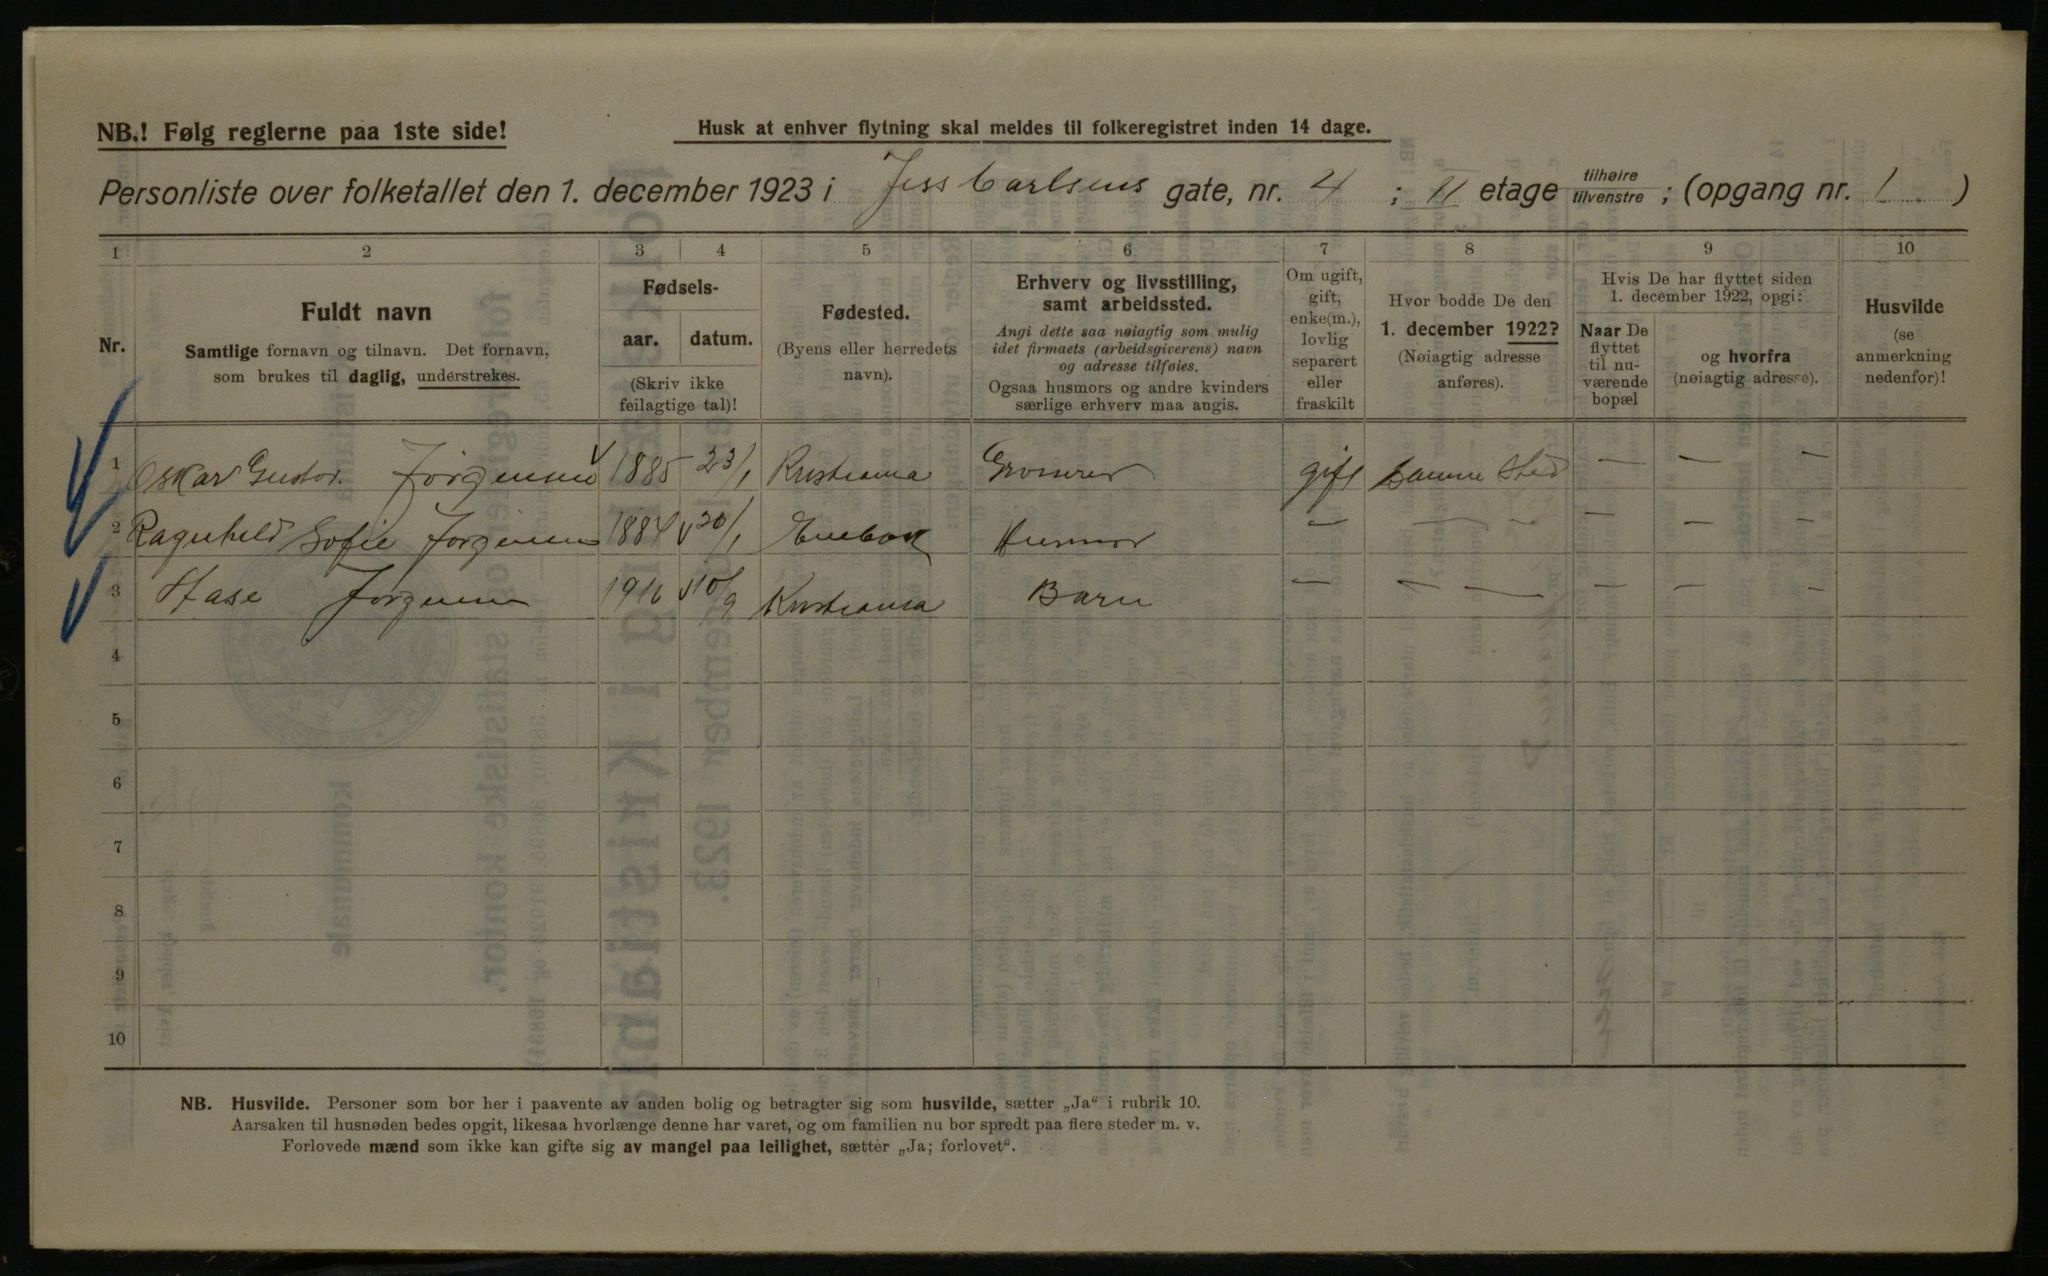 NB.! Følg reglerne paa 1ste side!
Husk at enhver flytning skal meldes til folkeregistret inden 14 dage.
Personliste over folketallet den 1. december 1923 i Jess Carlsens gate, nr. 4 ; II etage tilhøire tilvenstre ; (opgang nr. 1 )
1 2 3 4 5 6 7 8 9 10
Nr.
Fuldt navn
Samtlige fornavn og tilnavn. Det fornavn,
som brukes til daglig, understrekes.
Fødsels-
aar. datum.
(Skriv ikke
feilagtige tal)!
Fødested.
(Byens eller herredets
navn).
Erhverv og livsstilling,
samt arbeidssted.
Angi dette saa nøiagtig som mulig
idet firmaets (arbeidsgiverens) navn
og adresse tilføies.
Ogsaa husmors og andre kvinders
særlige erhverv maa angis.
Om ugift,
gift,
enke(m.),
lovlig
separert
eller
fraskilt
Hvor bodde De den
1. december 1922?
(Nøiagtig adresse
anføres).
Hvis De har flyttet siden
1. december 1922, opgi:
Naar De
flyttet
til nu-
værende
bopæl
og hvorfra
(nøiagtig adresse).
Husvilde
(se
anmerkning
nedenfor)!
1 Oskar Gustav. Jörgensen 1885 23/1 Kristiania gift Samme Sted — — —
2 Ragnhild Sofie Jörgensen 1884 20/1 Enebak Husmor — — — — — —
3 Aase Jörgensen 1916 10/9 Kristiania Barn — — — — — —
4
5
6
7
8
9
10
NB. Husvilde. Personer som bor her i paavente av anden bolig og betragter sig som husvilde, sætter „Ja“ i rubrik 10.
Aarsaken til husnøden bedes opgit, likesaa hvorlænge denne har varet, og om familien nu bor spredt paa flere steder m. v.
Forlovede mænd som ikke kan gifte sig av mangel paa leilighet, sætter „Ja; forlovet“.